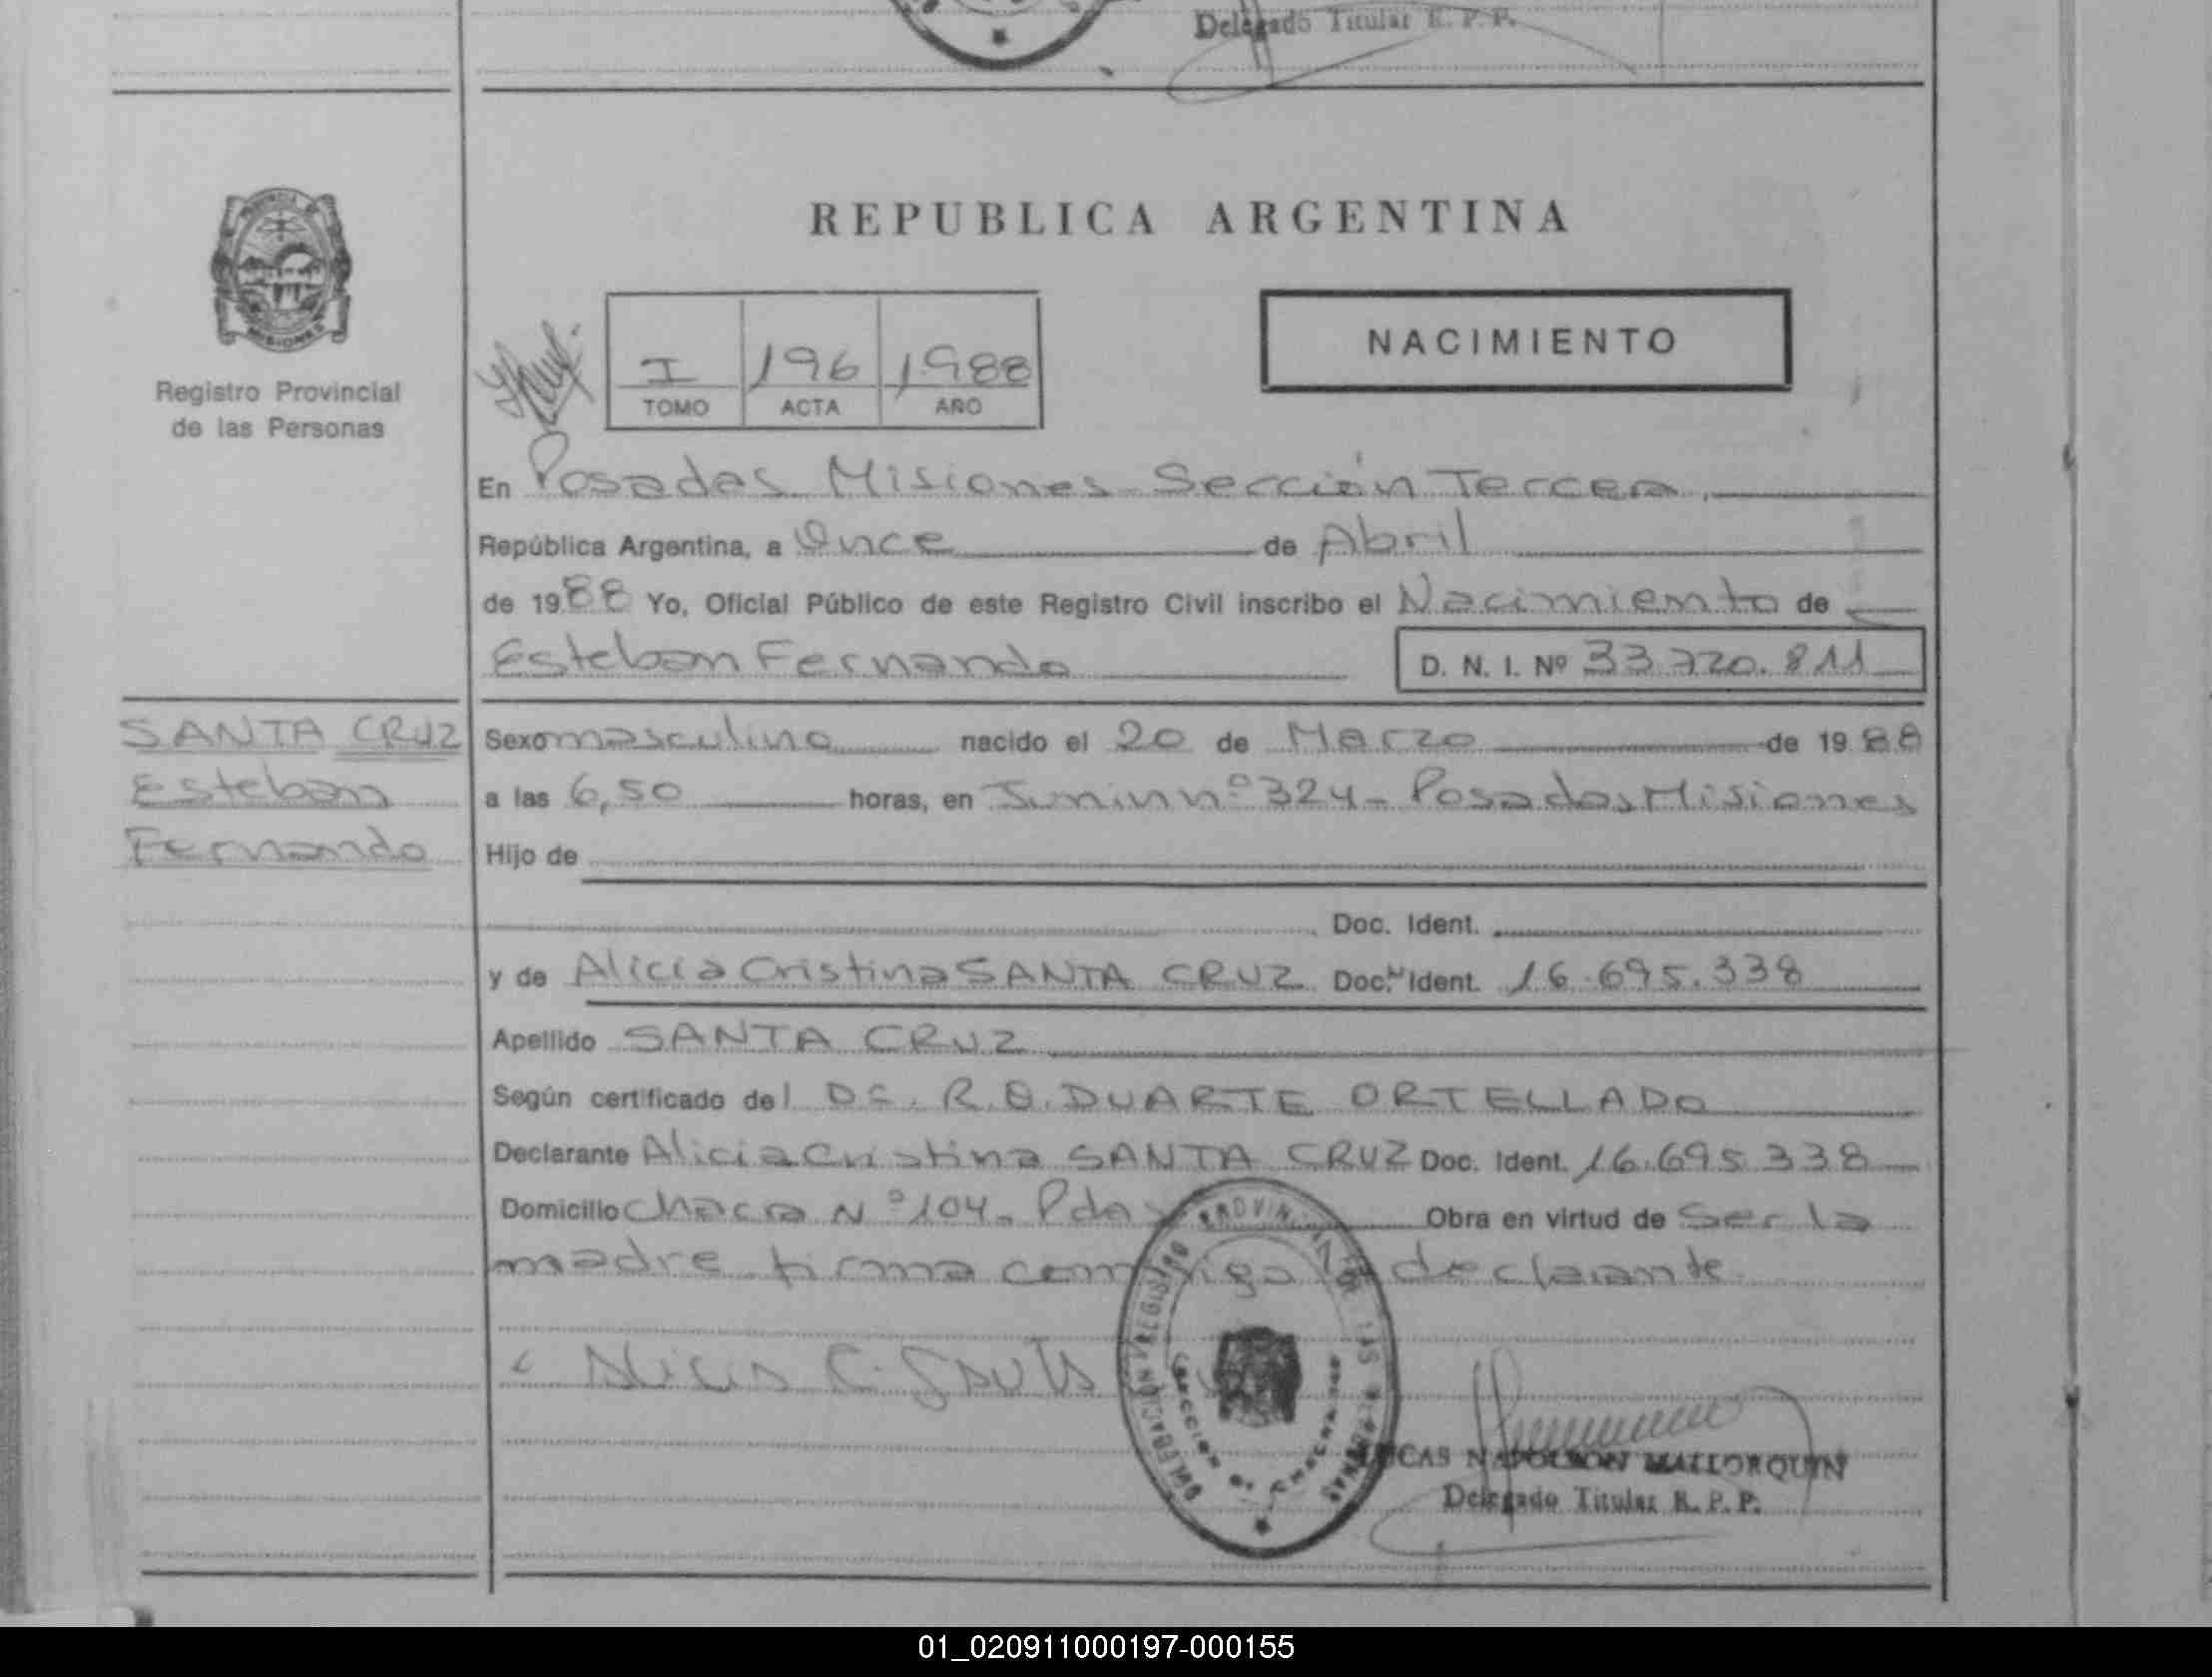 Delegado Titular R. P. P.
REPUBLICA ARGENTINA
MISIONES
Registro Provincial
de las Personas
I 196 1988
TOMO ACTA AÑO
NACIMIENTO
En Posadas Misiones Sección Tercera
República Argentina, a Once de Abril
de 1988 Yo, Oficial Público de este Registro Civil inscribo el Nacimiento de
Esteban Fernando D. N. I. Nº 33.720.811
SANTA CRUZ
Esteban
Fernando
Sexo masculino nacido el 20 de Marzo de 1988
a las 6,50 horas, en Junin nº 324- Posadas Misiones
Hijo de
Doc. Ident.
y de Alicia Cristina SANTA CRUZ Doc. Ident. 16.695.338
Apellido SANTA CRUZ
Según certificado del Dr. R. O. DUARTE ORTELLADO
Declarante Alicia Cristina SANTA CRUZ Doc. Ident. 16.695.338
Domicilio Chacra Nº 104- Pdas Obra en virtud de Ser la
madre firma conmigo la declarante
Alicia C. Santa
DELEGACION REGISTRO PROVINCIAL DE LAS PERSONAS
LUCAS NAPOLEON MALLORQUIN
Delegado Titular R. P. P.
01_020911000197-000155